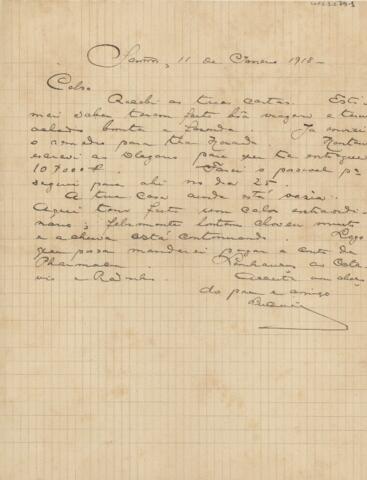 Santos, 11 de Janeiro 1918 –
Celso
Recebi as tuas cartas. Esti-
mei saber terem feito bôa viagem e terem
achado bonita a Fazenda. Ja enviei
o remedio para tua Zarada. Hontem
escrevi ao Olegario para que te entregue
107000 . Farei o possivel pª
seguir para ahi no dia 25.
A tua casa ainda está vasia.
Aqui tem feito um calor extraordi-
nario; felizmente hontem choveu muito
e a chuva está continuando. Logo
que possa mandarei pagar a conta da
Pharmacia. Lembranças ao Octa-
vio e
Aceita um abraço
do pae e amigo